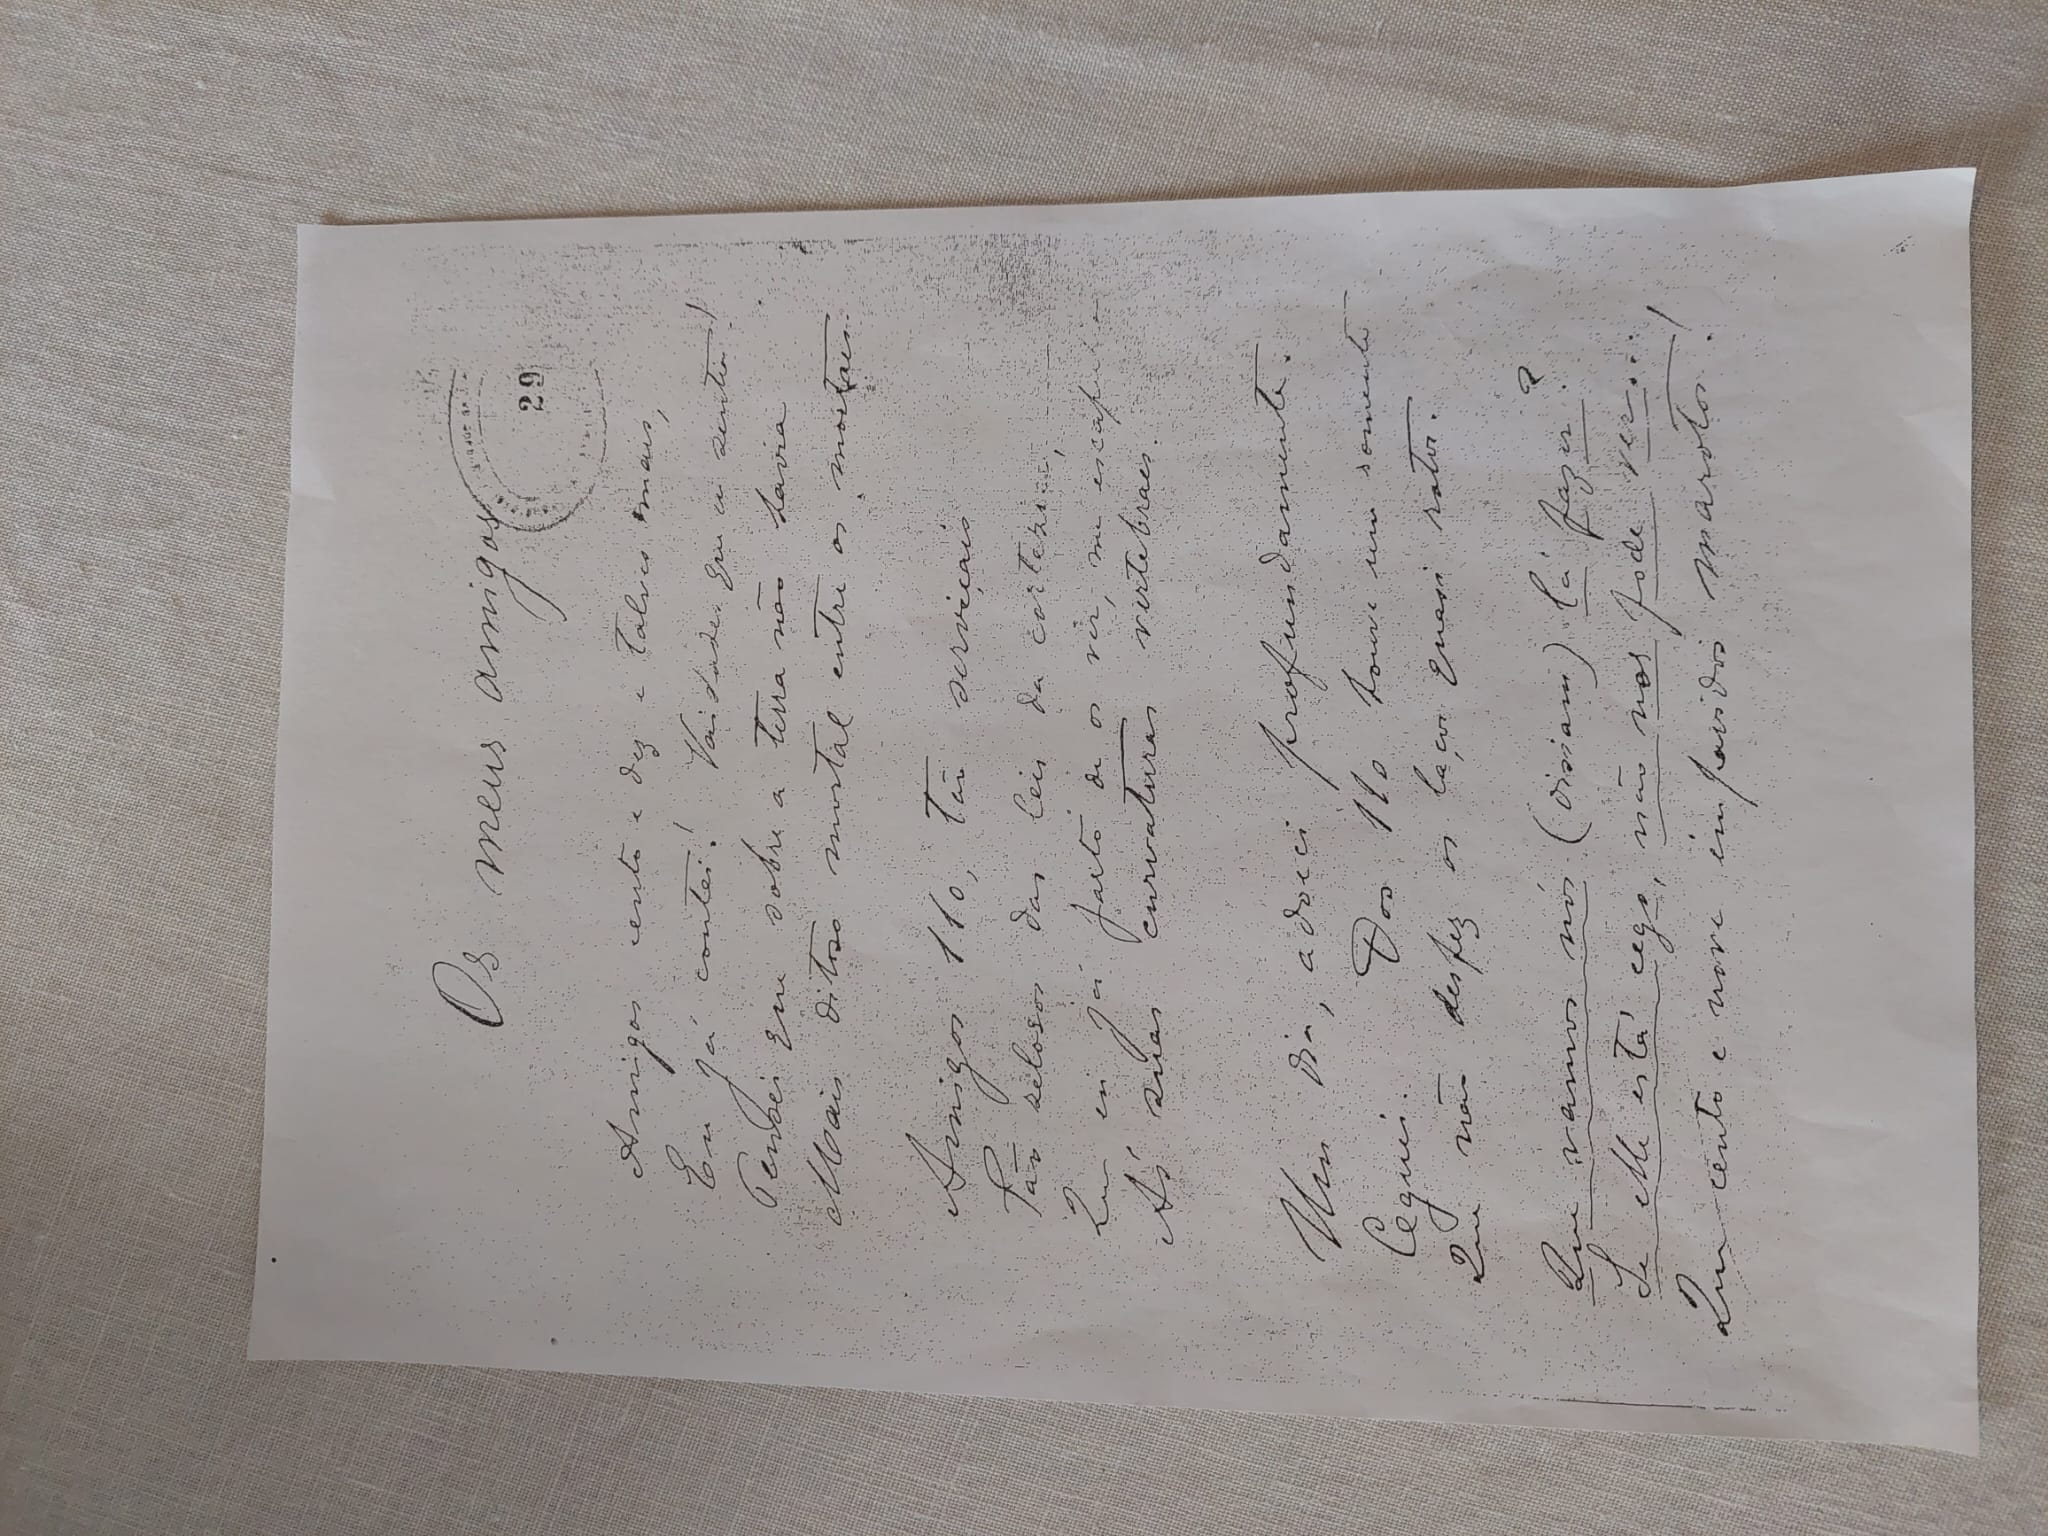 Os meus amigos
29
Amigos cento e dez e talvez mais,
Eu já contei! Vaidades que eu sentia!
Pensei que sobre a terra não havia
Mais ditoso mortal entre os mortaes.
Amigos 110, tão serviçais
Tão zelosos das leis da cortezia,
Que eu já farto de os ver, me escapulia
Ás suas curvaturas vertebraes.
Um dia, adoeci profundamente.
Ceguei. Dos 110 houve um somente
Que não desfez os laços quasi rotos.
Que vamos nós (disiam) lá fazer?
Se elle está cego, não nos pode ver...
Que cento e nove impavidos marotos!